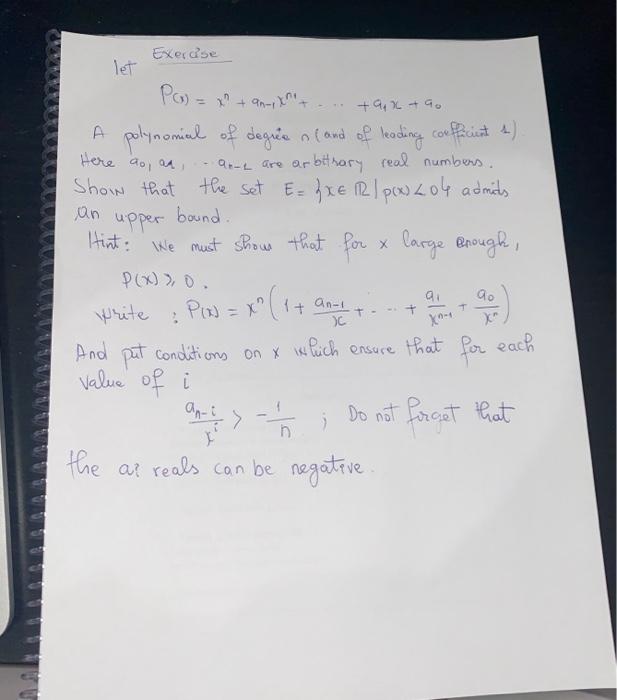 Exercise
let
P(x) = xⁿ + aₙ₋₁xⁿ⁻¹ + . .. + a₁x + a₀
A polynomial of degree n (and of leading coefficient 1).
Here a₀, a₁, ... aₙ₋₁ are arbitrary real numbers.
Show that the set E = {x ∈ ℝ | p(x) < 0} admits
an upper bound.
Hint: We must show that for x large enough,
P(x) ≥ 0.
write : P(x) = xⁿ (1 + aₙ₋₁/x + . ... + a₁/xⁿ⁻¹ + a₀/xⁿ)
And put conditions on x which ensure that for each
value of i
aₙ₋ᵢ/xⁱ > -1/n ; Do not forget that
the ai reals can be negative.